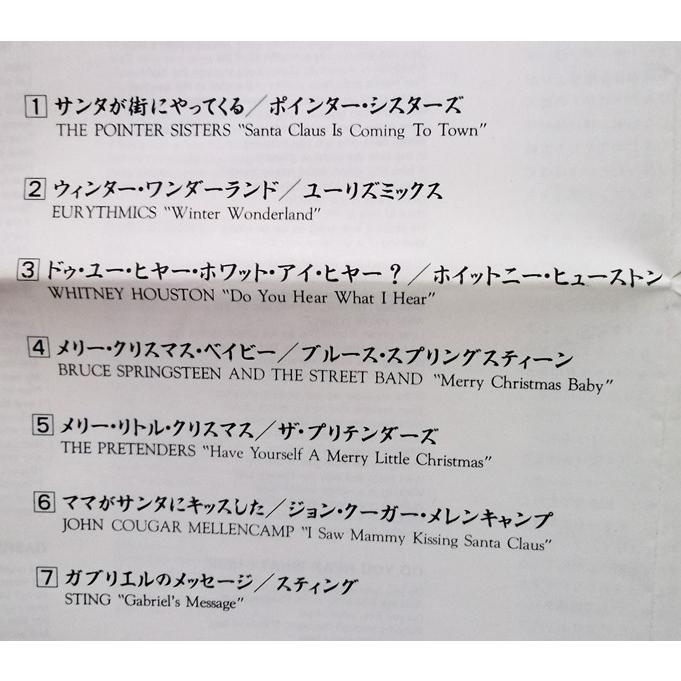 1 サンタが街にやってくる／ポインター・シスターズ
THE POINTER SISTERS "Santa Claus Is Coming To Town"
2 ウィンター・ワンダーランド／ユーリズミックス
EURYTHMICS "Winter Wonderland"
3 ドゥ・ユー・ヒヤー・ホワット・アイ・ヒヤー？／ホイットニー・ヒューストン
WHITNEY HOUSTON "Do You Hear What I Hear"
4 メリー・クリスマス・ベイビー／ブルース・スプリングスティーン
BRUCE SPRINGSTEEN AND THE STREET BAND "Merry Christmas Baby"
5 メリー・リトル・クリスマス／ザ・プリテンダーズ
THE PRETENDERS "Have Yourself A Merry Little Christmas"
6 ママがサンタにキッスした／ジョン・クーガー・メレンキャンプ
JOHN COUGAR MELLENCAMP "I Saw Mammy Kissing Santa Claus"
7 ガブリエルのメッセージ／スティング
STING "Gabriel's Message"